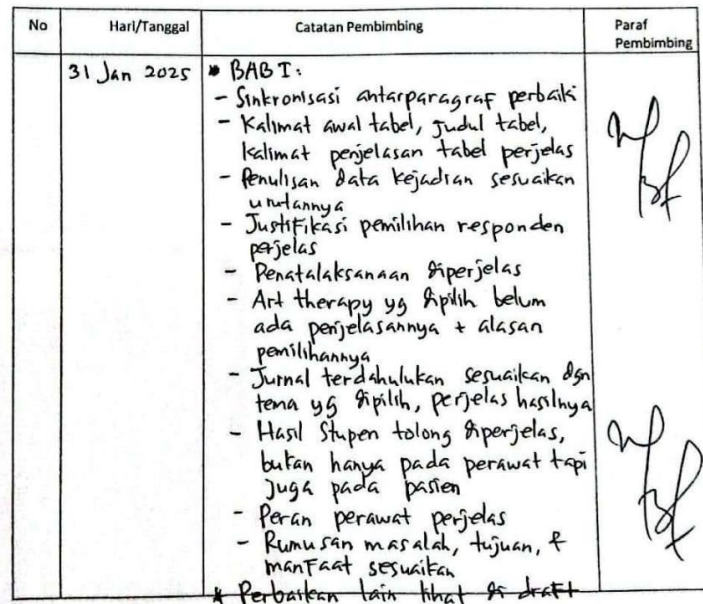 No Hari/Tanggal Catatan Pembimbing Paraf
Pembimbing
31 Jan 2025 * BAB I:
- Sinkronisasi antarparagraf perbaiki
- Kalimat awal tabel, judul tabel,
kalimat penjelasan tabel perjelas
- Penulisan data kejadian sesuaikan
urutannya
- Justifikasi pemilihan responden
perjelas
- Penatalaksanaan diperjelas
- Art therapy yg dipilih belum
ada penjelasannya + alasan
pemilihannya
- Jurnal terdahulukan sesuaikan dgn
tema yg dipilih, perjelas hasilnya
- Hasil Stupen tolong diperjelas,
bukan hanya pada perawat tapi
juga pada pasien
- Peran perawat perjelas
- Rumusan masalah, tujuan, &
manfaat sesuaikan
* Perbaikan lain lihat di draft